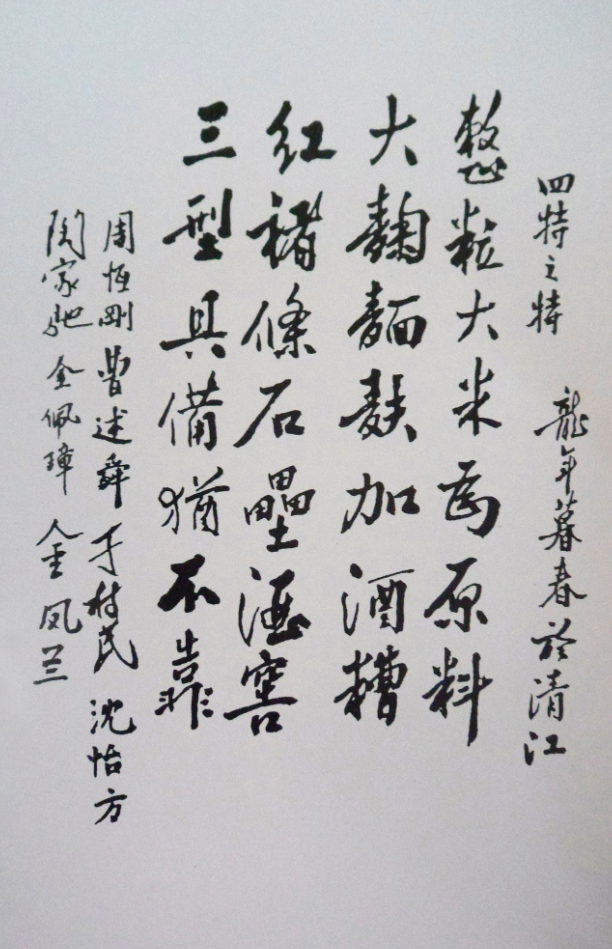 四特之特 龍年暮春於清江
整粒大米為原料
大麯麵麩加酒糟
紅褚條石壘酒窖
三型具備猶不靠
周恆剛 曹述舜 于树民 沈怡方
陶家驰 全佩璋 金凤兰